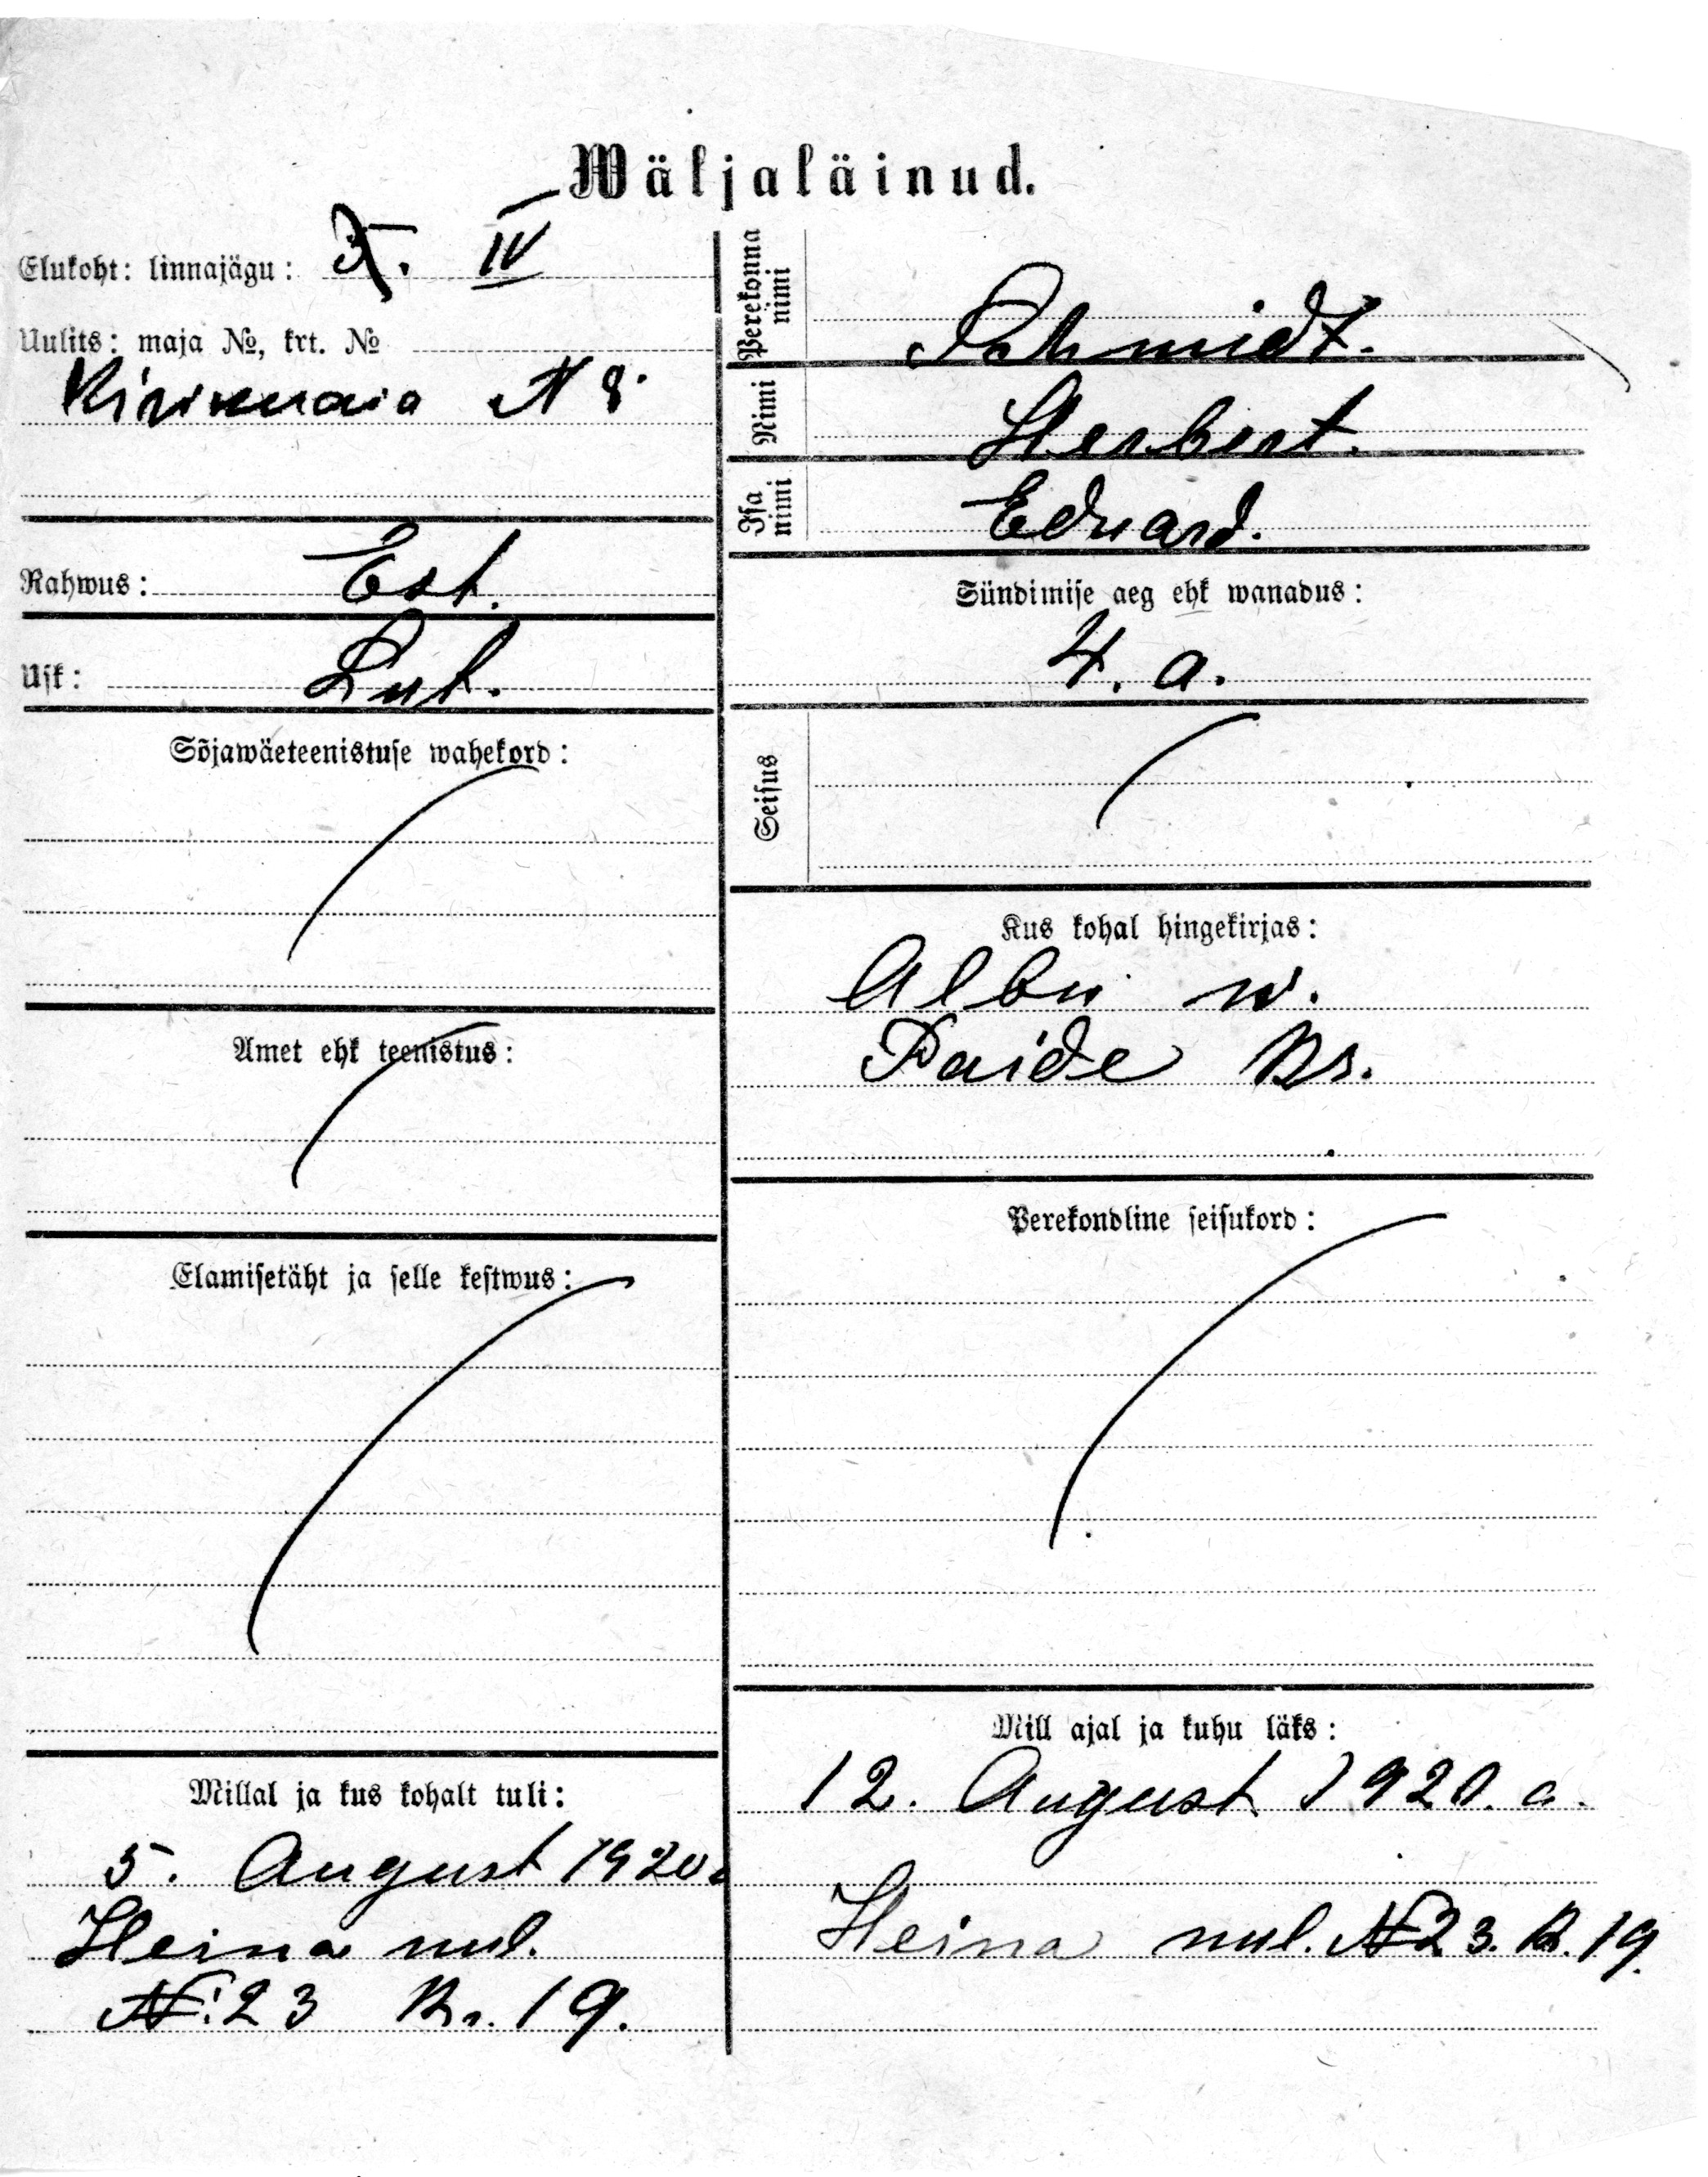 Wäljaläinud.
Elukoht: linnajägu: IV
Uulits: maja №, krt. №
Kirikuaia № 8.
Rahwus: Est.
Usk: Lut.
Sõjawäeteenistuse wahekord:
Amet ehk teenistus:
Elamisetäht ja selle kestwus:
Millal ja kus kohalt tuli:
5. August 1920 a
Heina uul.
№: 23 Kr. 19.
Perekonna nimi
Schmidt.
Nimi
Herbert.
Isa nimi
Eduard.
Sündimise aeg ehk wanadus:
4. a.
Seisus
Kus kohal hingekirjas:
Albu w.
Paide Kr.
Perekondline seisukord:
Mill ajal ja kuhu läks:
12. August 1920. a.
Heina uul. № 23. Kr. 19.